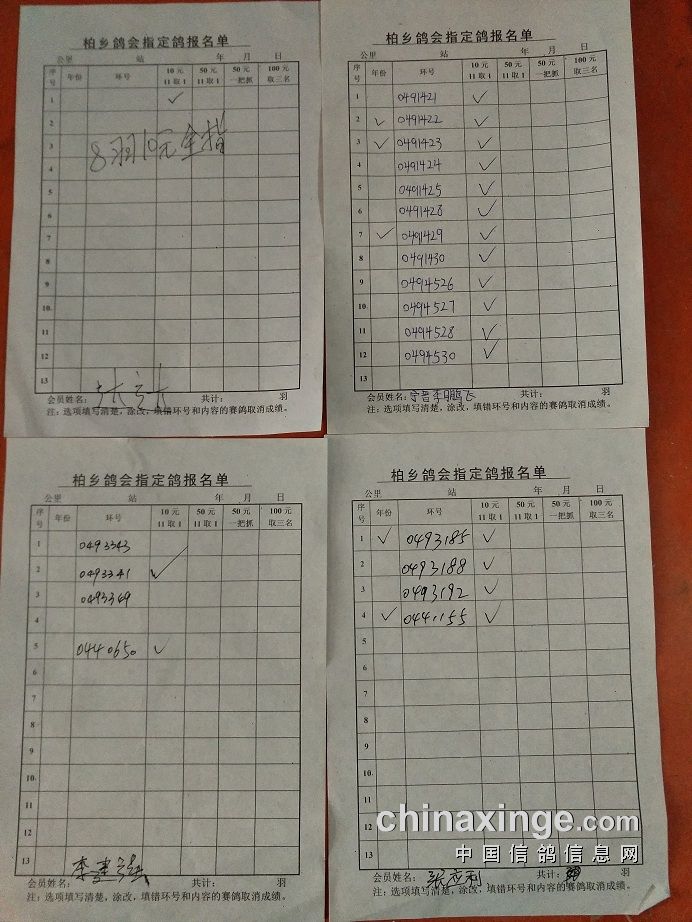 柏乡鸽会指定鸽报名单
公里 站 年 月 日
序号 年份 环号 10元11取1 50元11取1 50元一把抓 100元取三名
1 ✓
2
3 8羽10元全指
4
5
6
7
8
9
10
11
12
13
会员姓名： 共计： 羽
注：选项填写清楚，涂改，填错环号和内容的赛鸽取消成绩。
柏乡鸽会指定鸽报名单
公里 站 年 月 日
序号 年份 环号 10元11取1 50元11取1 50元一把抓 100元取三名
1 0491421 ✓
2 ✓ 0491422 ✓
3 ✓ 0491423 ✓
4 0491424 ✓
5 0491425 ✓
6 0491428 ✓
7 ✓ 0491429 ✓
8 0491430 ✓
9 0494526 ✓
10 0494527 ✓
11 0494528 ✓
12 0494530 ✓
13
会员姓名：宁晋李鹏飞 共计： 羽
注：选项填写清楚，涂改，填错环号和内容的赛鸽取消成绩。
柏乡鸽会指定鸽报名单
公里 站 年 月 日
序号 年份 环号 10元11取1 50元11取1 50元一把抓 100元取三名
1 0493343
2 0493341 ✓
3 0493349
4
5 0440650 ✓
6
7
8
9
10
11
12
13
会员姓名：李建强 共计： 羽
注：选项填写清楚，涂改，填错环号和内容的赛鸽取消成绩。
柏乡鸽会指定鸽报名单
公里 站 年 月 日
序号 年份 环号 10元11取1 50元11取1 50元一把抓 100元取三名
1 ✓ 0493185 ✓
2 0493188 ✓
3 0493192 ✓
4 ✓ 0441155 ✓
5
6
7
8
9
10
11
12
13
会员姓名：张应利 共计： 羽
注：选项填写清楚，涂改，填错环号和内容的赛鸽取消成绩。
chinaxinge.com
中国信鸽信息网